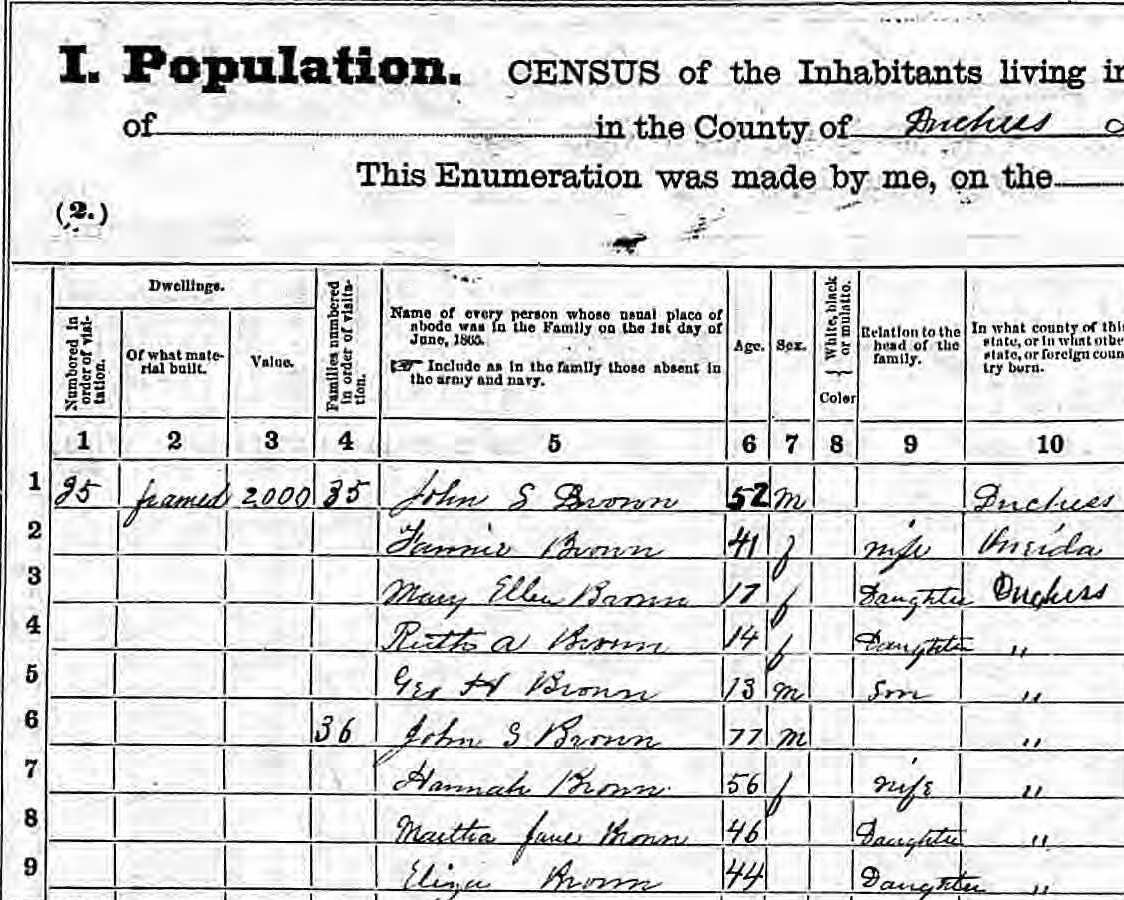 I. Population. CENSUS of the Inhabitants living in
of in the County of Duchess
This Enumeration was made by me, on the
(2.)
Dwellings.
Numbered in order of visi-tation.
Of what mate-rial built.
Value.
Families numbered in order of visita-tion.
Name of every person whose usual place of
abode was in the Family on the 1st day of
June, 1865.
☞ Include as in the family those absent in
the army and navy.
Age.
Sex.
White, black or mulatto.
Color
Relation to the
head of the
family.
In what county of this
state, or in what othe
state, or foreign coun
try born.
1 2 3 4 5 6 7 8 9 10
1 35 framed 2000 35 John S Brown 52 m Duchess
2 Fannie Brown 41 f wife Oneida
3 Mary Ellen Brown 17 f Daughter Duchess
4 Ruth a Brown 14 f Daughter "
5 Geo H Brown 13 m Son "
6 36 John S Brown 77 m "
7 Hannah Brown 56 f wife "
8 Martha Jane Brown 46 Daughter "
9 Eliza Brown 44 Daughter "